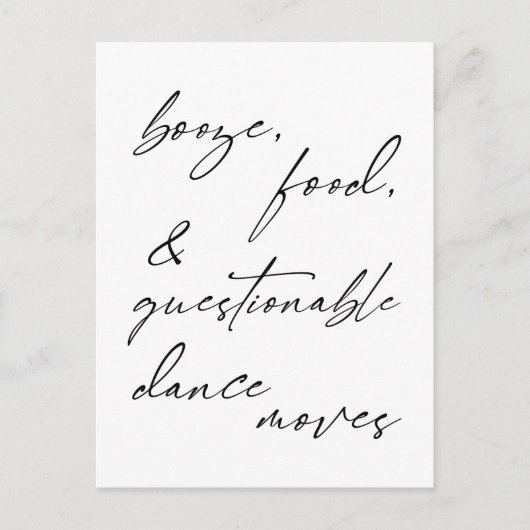 booze,
food,
&
questionable
dance
moves